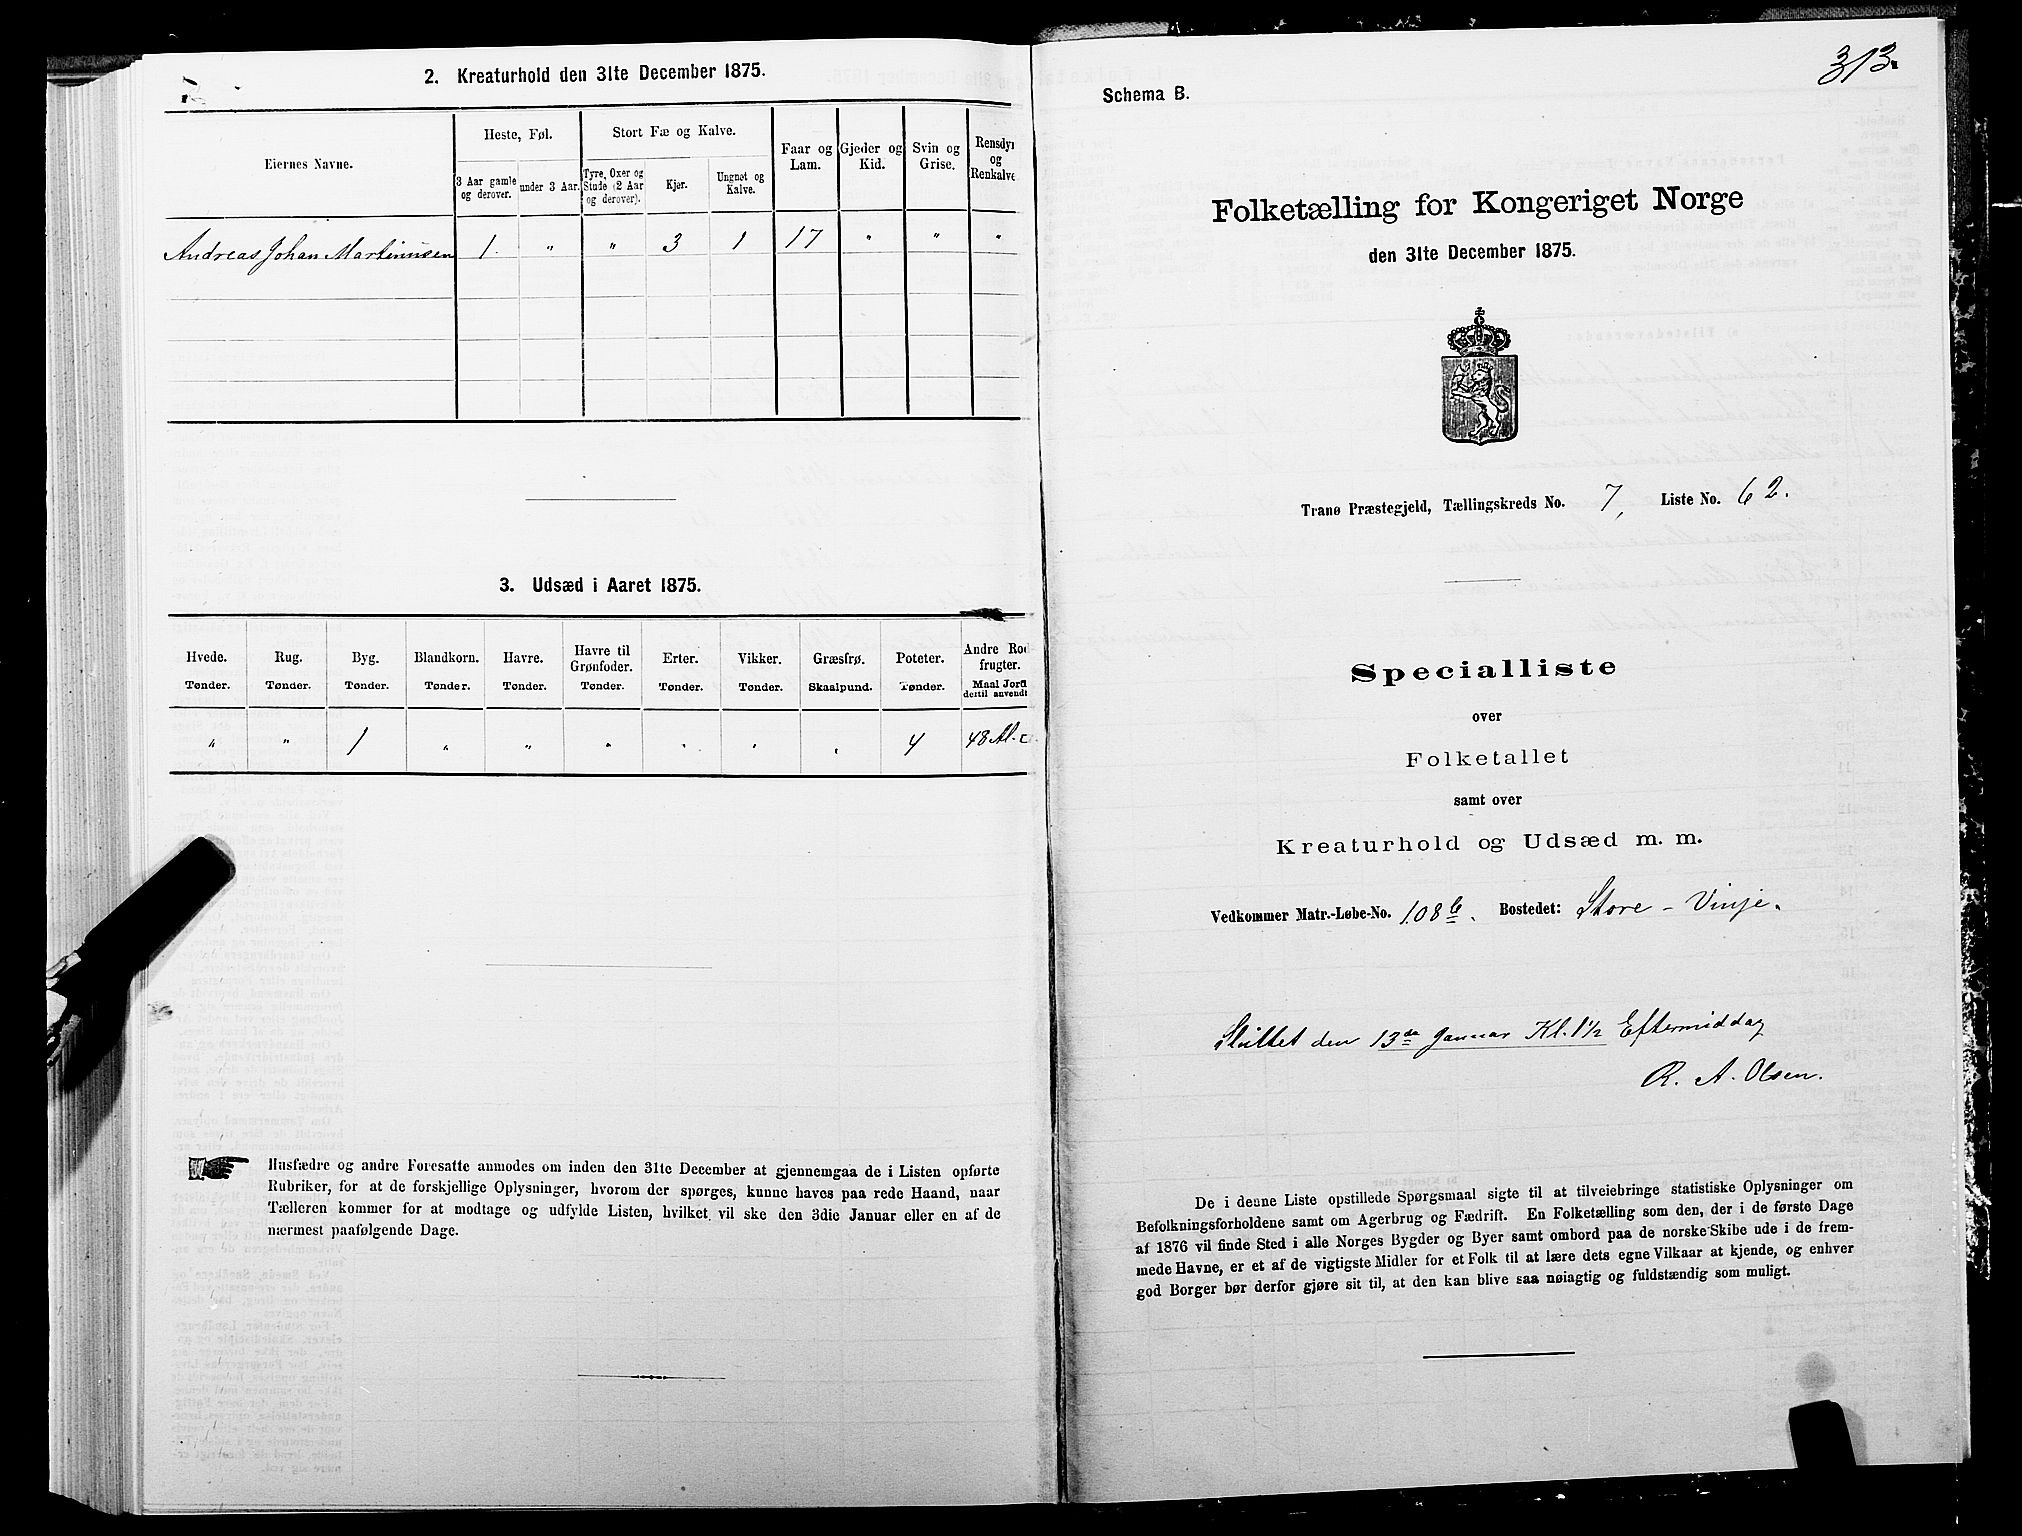 2. Kreaturhold den 31te December 1875.
Eiernes Navne.
Heste, Føl.
Stort Fæ og Kalve.
Faar og Lam.
Gjeder og Kid.
Svin og Grise.
Rensdyr og Renkalve
3 Aar gamle og derover.
under 3 Aar.
Tyre, Oxer og Stude (2 Aar og derover).
Kjør.
Ungnøt og Kalve.
Andreas Johan Martinusen 1 " " 3 1 17 " " "
3. Udsæd i Aaret 1875.
Hvede. Rug. Byg. Blandkorn. Havre. Havre til Grønfoder. Erter. Vikker. Græsfrø. Poteter. Andre Rod frugter.
Tønder. Tønder. Tønder. Tønder. Tønder. Tønder. Tønder. Tønder. Skaalpund. Tønder. Maal Jord dertil anvendt
" " 1 " " " " " " 4 48 Al.
Husfædre og andre Foresatte anmodes om inden den 31te December at gjennemgaa de i Listen opførte
Rubriker, for at de forskjellige Oplysninger, hvorom der spørges, kunne haves paa rede Haand, naar
Tælleren kommer for at modtage og udfylde Listen, hvilket vil ske den 3die Januar eller en af de
nærmest paafølgende Dage.
313.
Schema B.
Folketælling for Kongeriget Norge
den 31te December 1875.
Tranø Præstegjeld, Tællingskreds No. 7, Liste No. 62.
Specialliste
over
Folketallet
samt over
Kreaturhold og Udsæd m. m.
Vedkommer Matr.-Løbe-No. 108 b. Bostedet: Store - Vinje.
Sluttet den 13de Januar Kl. 1 1/2 Eftermiddag
R. A. Olsen.
De i denne Liste opstillede Spørgsmaal sigte til at tilveiebringe statistiske Oplysninger om
Befolkningsforholdene samt om Agerbrug og Fædrift. En Folketælling som den, der i de første Dage
af 1876 vil finde Sted i alle Norges Bygder og Byer samt ombord paa de norske Skibe ude i de frem-
mede Havne, er et af de vigtigste Midler for et Folk til at lære dets egne Vilkaar at kjende, og enhver
god Borger bør derfor gjøre sit til, at den kan blive saa nøiagtig og fuldstændig som muligt.